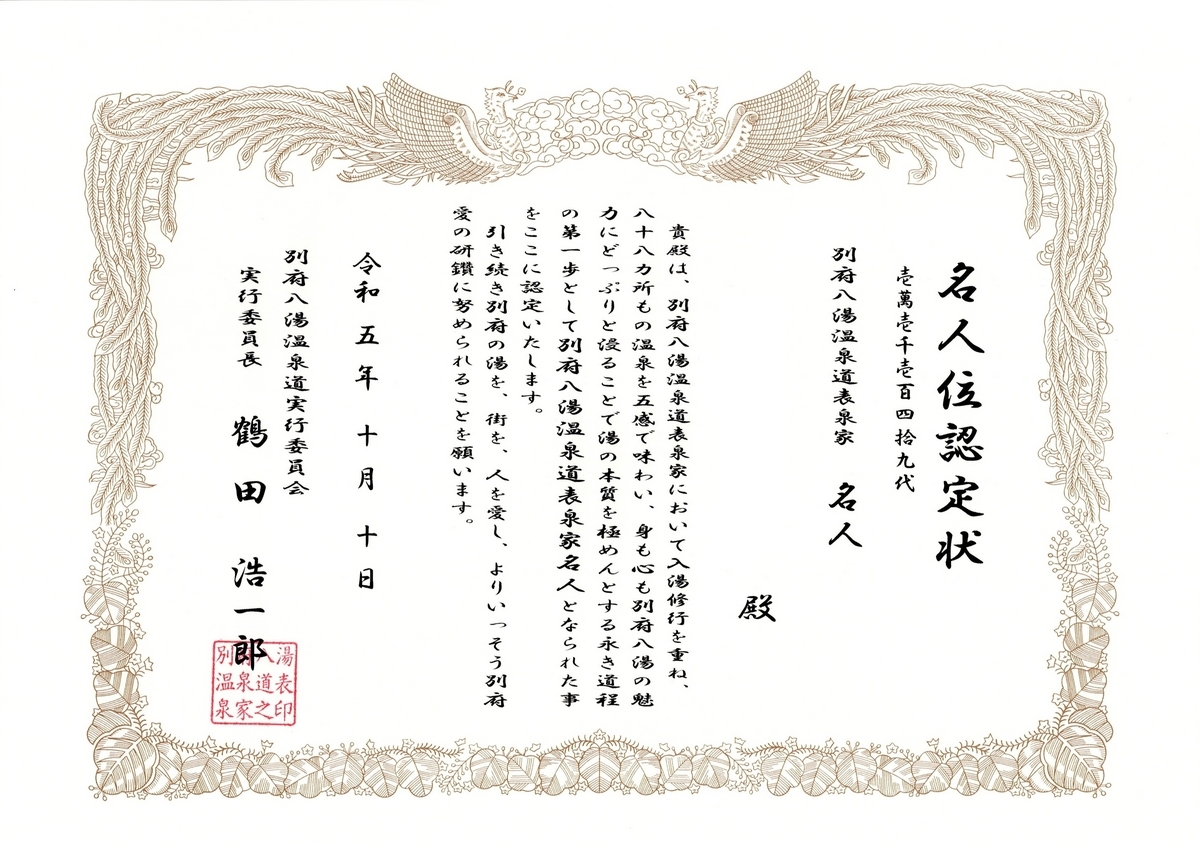 名人位認定状
壱萬壱千壱百四拾九代
別府八湯温泉道表泉家 名人
殿
貴殿は、別府八湯温泉道表泉家において入湯修行を重ね、
八十八カ所もの温泉を五感で味わい、身も心も別府八湯の魅
力にどっぷりと浸ることで湯の本質を極めんとする永き道程
の第一歩として別府八湯温泉道表泉家名人となられた事
をここに認定いたします。
引き続き別府の湯を、街を、人を愛し、よりいっそう別府
愛の研鑽に努められることを願います。
令和五年十月十日
別府八湯温泉道実行委員会
実行委員長 鶴田浩一郎
別府八湯
温泉道表
泉家之印